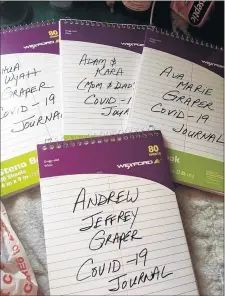 80
WEXFORD
WYATT
GRAPER
COVID-19
JOURNAL
Steno
6 in x 9 in
WEXFORD
ADAM &
KARA
(MOM & DAD)
COVID-1
JOUR
80
WEXFORD
AVA
MARIE
GRAPER
COVID-19
JOURNAL
ok
80
WEXFORD
ANDREW
JEFFREY
GRAPER
COVID-19
JOURNAL